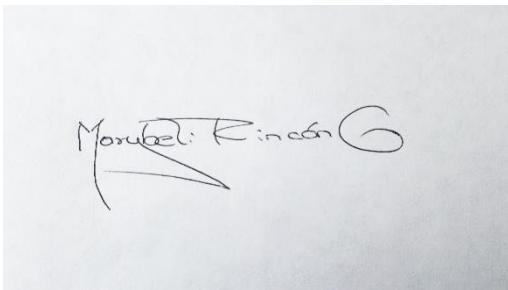 Marubeli Rincón G